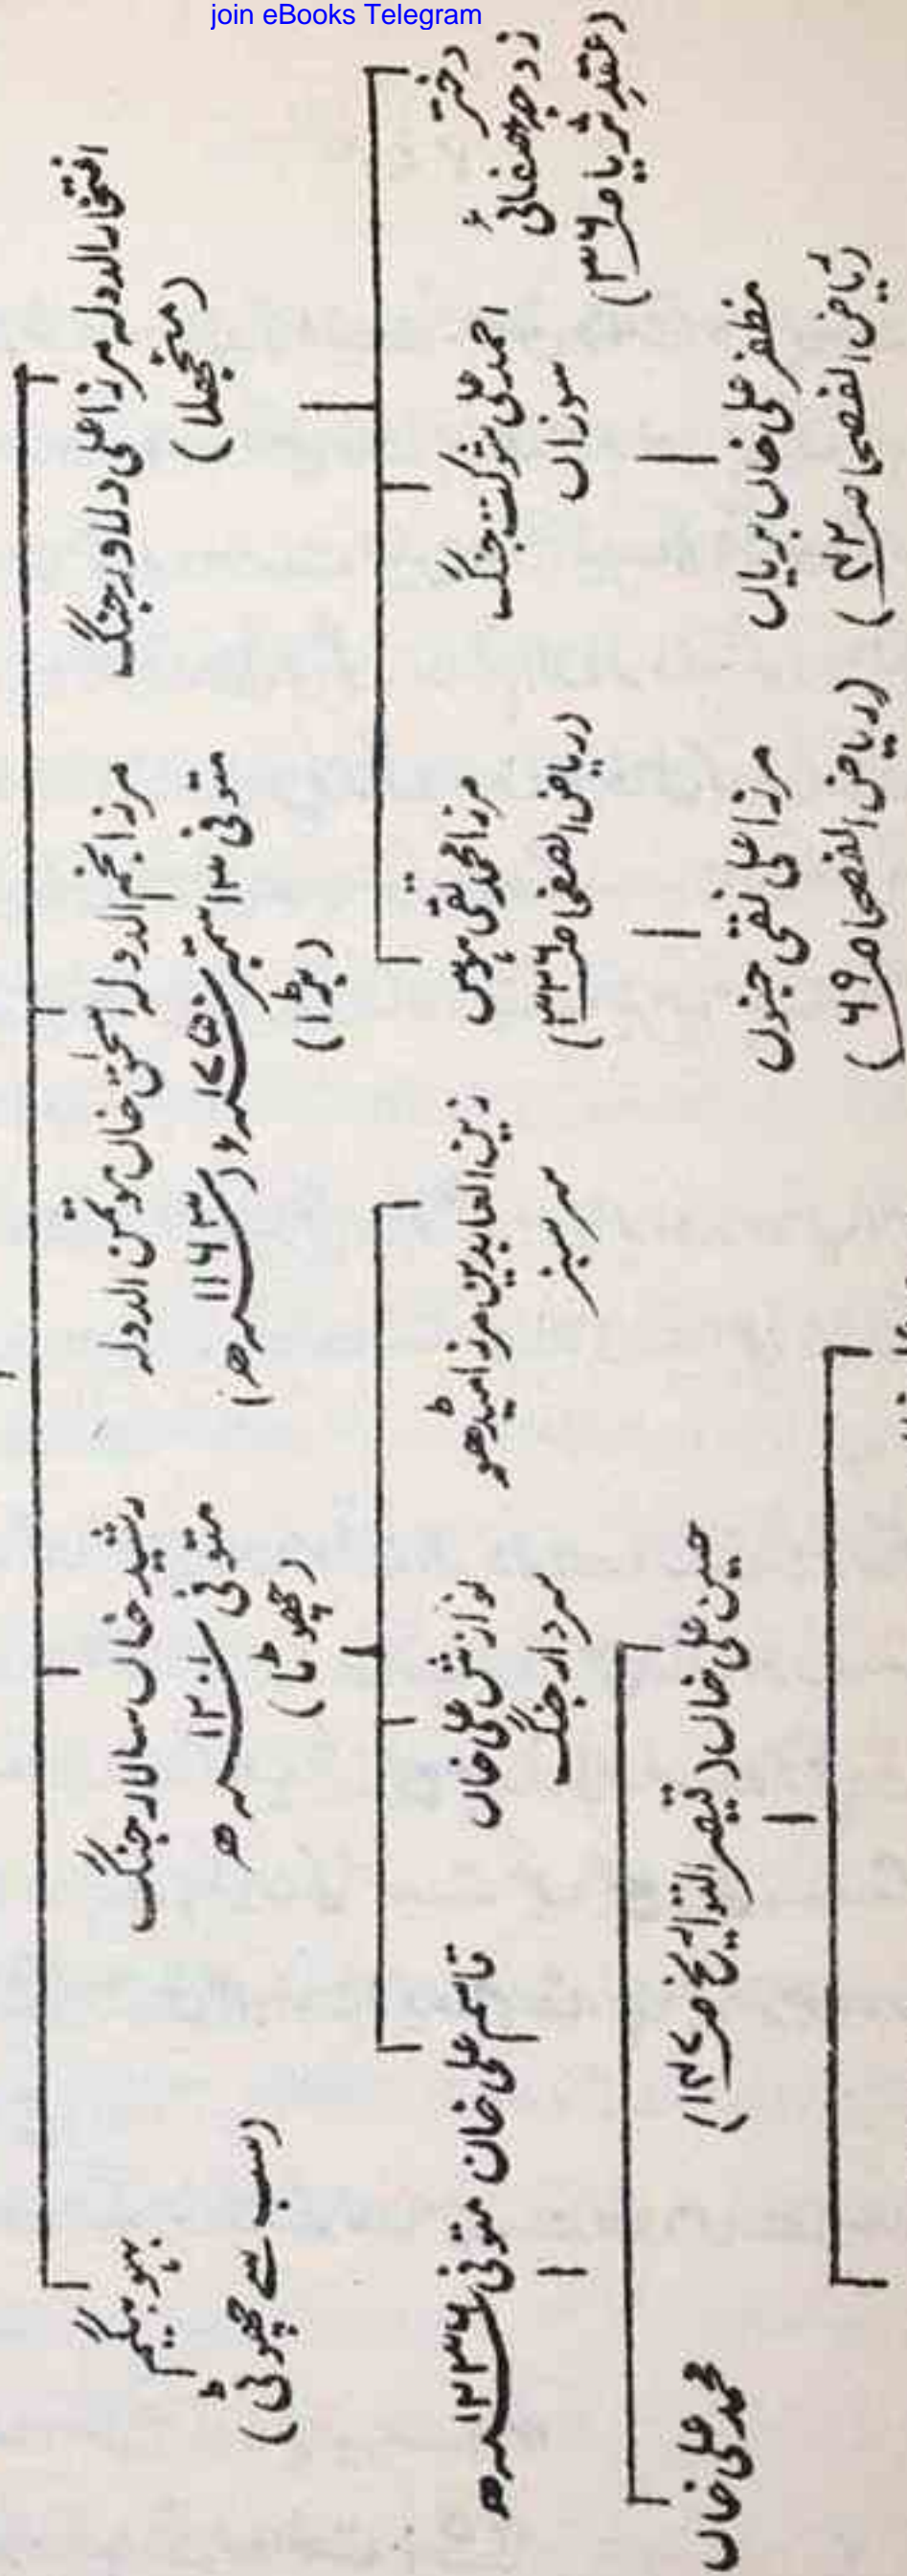 join eBooks Telegram
افتخار الدولہ مرزا علی دلاور جنگ
(منجھلا)
مرزا نجم الدولہ اسحٰق خاں موتمن الدولہ
متوفی ۱۳ ستمبر ۱۷۵۰ء (۱۱۶۳ھ)
(بڑا)
رشید خاں سالار جنگ
متوفی ۱۲۰۱ھ
(چھوٹا)
بہو بیگم
(سب سے چھوٹی)
دختر
زوجہ جھغائی
(عقدِ ثریا صـ۳۶)
احمد علی شوکت جنگ
سوزاں
مرزا محمد تقی ہوس
(ریاض الفصحا صـ۳۳۶)
زین العابدین مرزا میڈھو
سرسبز
نوازش علی خاں
سردار جنگ
قاسم علی خان متوفی ۱۲۳۶ھ
مظفر علی خاں بریاں
(ریاض الفصحا صـ۴۲)
مرزا علی نقی جنوں
(ریاض الفصحا صـ۶۹)
حسین علی خاں (قیصر التواریخ صـ۱۴۷)
محمد علی خاں